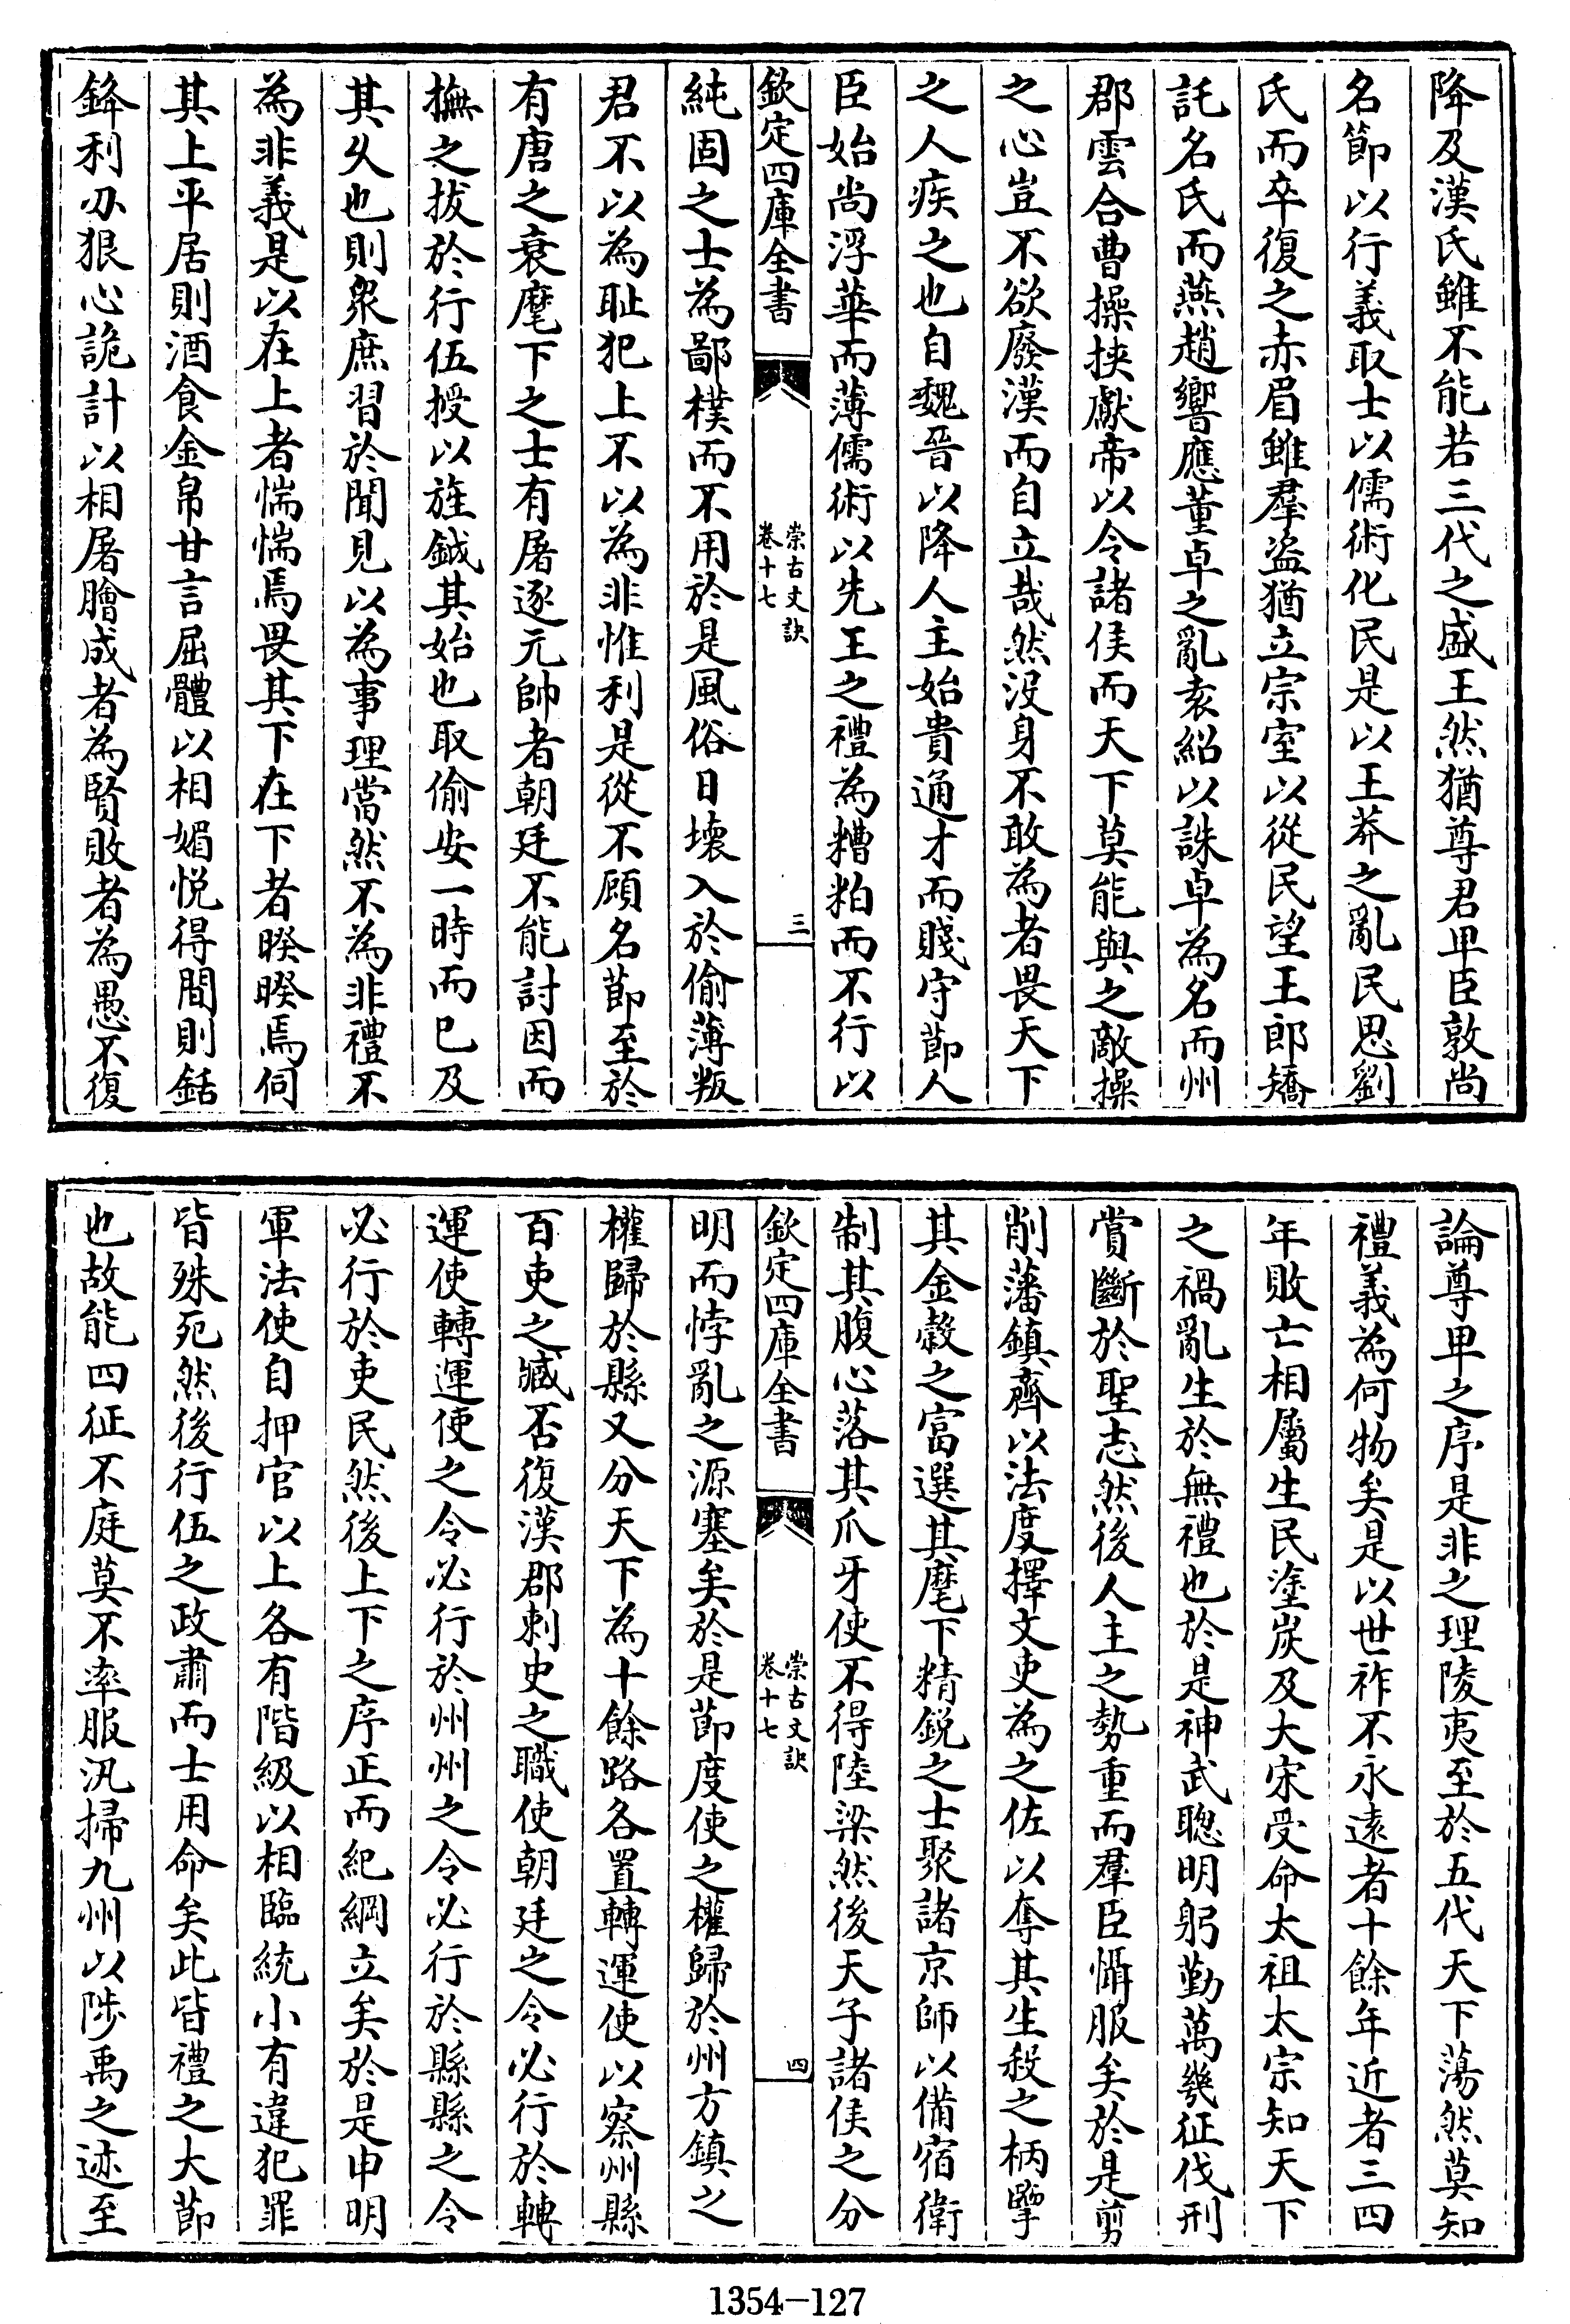 降及漢氏雖不能若三代之盛王然猶尊君卑臣敦尚
名節以行義取士以儒術化民是以王莽之亂民思劉
氏而卒復之赤眉雖羣盜猶立宗室以從民望王郎矯
託名氏而燕趙響應董卓之亂袁紹以誅卓為名而州
郡雲合曹操挾獻帝以令諸侯而天下莫能與之敵操
之心豈不欲廢漢而自立哉然沒身不敢為者畏天下
之人疾之也自魏晉以降人主始貴通才而賤守節人
臣始尚浮華而薄儒術以先王之禮為糟粕而不行以
欽定四庫全書
崇古文訣
卷十七
三
純固之士為鄙樸而不用於是風俗日壞入於偷薄叛
君不以為耻犯上不以為非惟利是從不顧名節至於
有唐之衰麾下之士有屠逐元帥者朝廷不能討因而
撫之拔於行伍授以旌鉞其始也取偷安一時而已及
其久也則衆庶習於聞見以為事理當然不為非禮不
為非義是以在上者惴惴焉畏其下在下者睽睽焉伺
其上平居則酒食金帛甘言屈體以相媚悦得間則銛
鋒利刃狠心詭計以相屠膾成者為賢敗者為愚不復
論尊卑之序是非之理陵夷至於五代天下蕩然莫知
禮義為何物矣是以世祚不永遠者十餘年近者三四
年敗亡相屬生民塗炭及大宋受命太祖太宗知天下
之禍亂生於無禮也於是神武聰明躬勤萬幾征伐刑
賞斷於聖志然後人主之勢重而羣臣懾服矣於是剪
削藩鎮齊以法度擇文吏為之佐以奪其生殺之柄擥
其金穀之富選其麾下精鋭之士聚諸京師以備宿衛
制其腹心落其爪牙使不得陸梁然後天子諸侯之分
欽定四庫全書
崇古文訣
卷十七
四
明而悖亂之源塞矣於是節度使之權歸於州方鎮之
權歸於縣又分天下為十餘路各置轉運使以察州縣
百吏之臧否復漢郡刺史之職使朝廷之令必行於轉
運使轉運使之令必行於州州之令必行於縣縣之令
必行於吏民然後上下之序正而紀綱立矣於是申明
軍法使自押官以上各有階級以相臨統小有違犯罪
皆殊死然後行伍之政肅而士用命矣此皆禮之大節
也故能四征不庭莫不率服汛掃九州以陟禹之迹至
1354-127